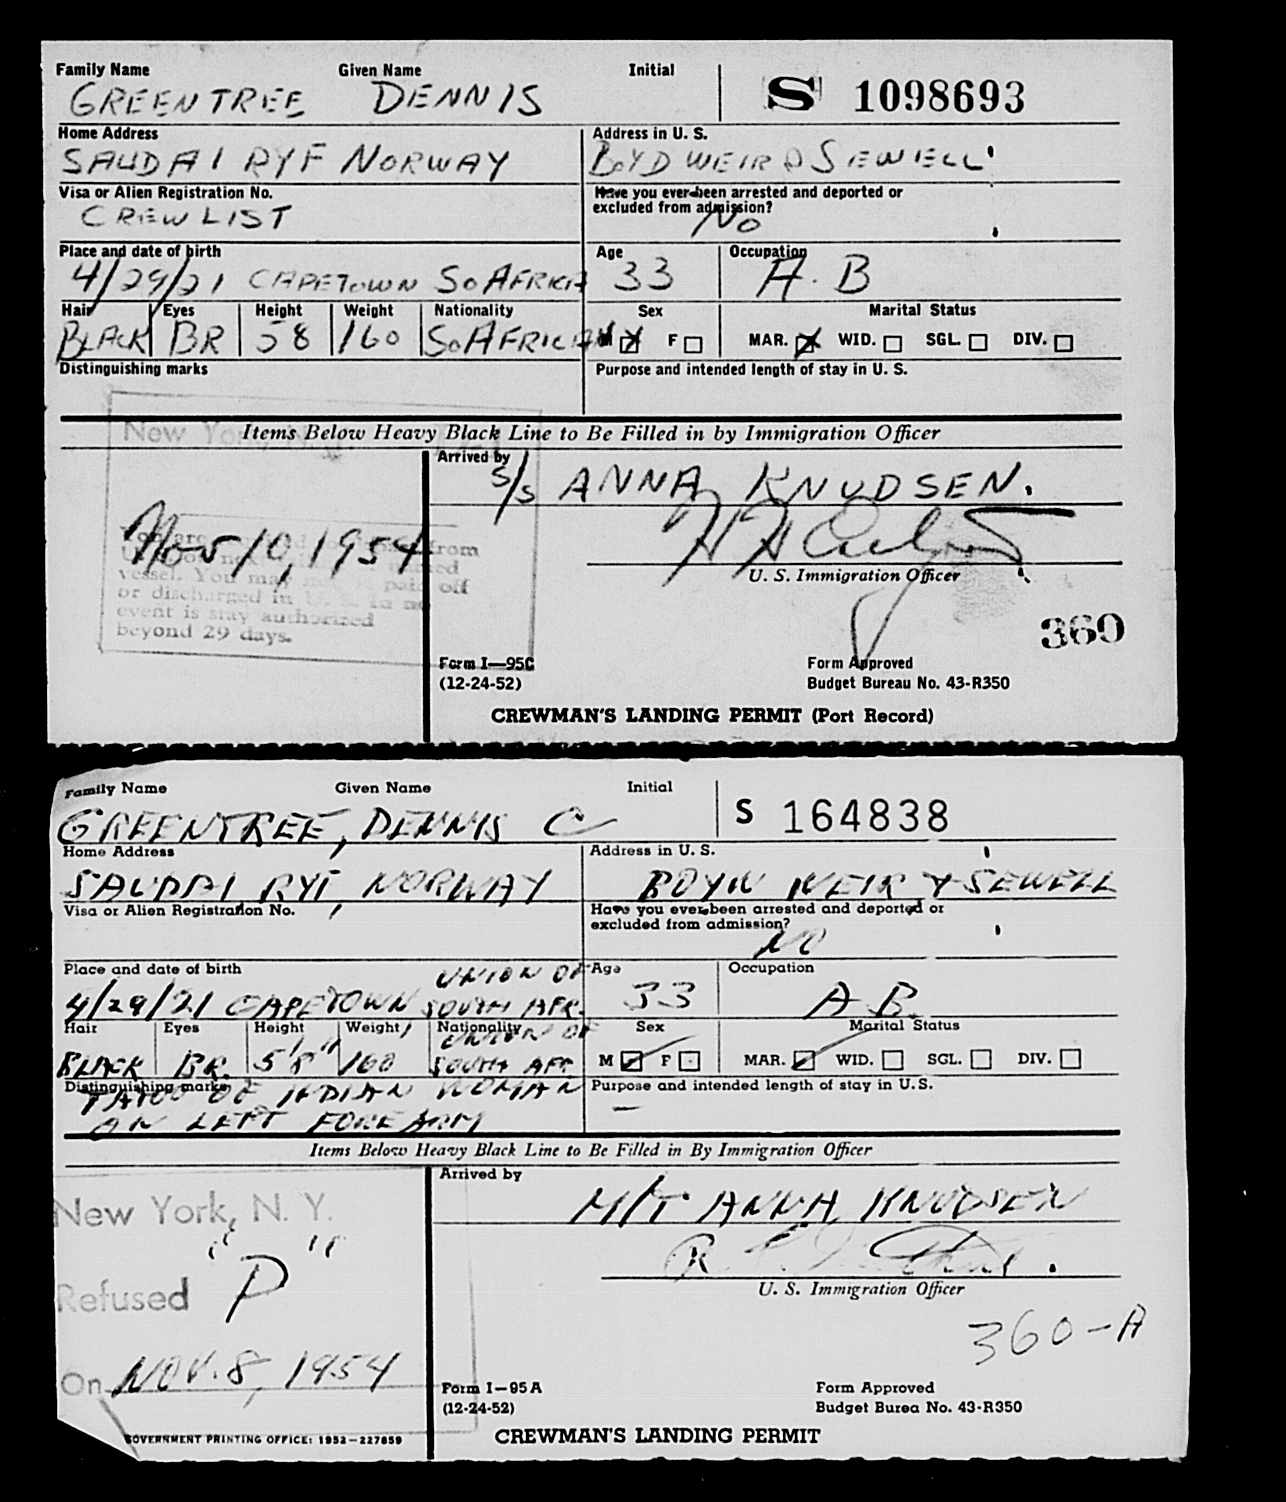 Family Name Given Name Initial
GREENTREE DENNIS S 1098693
Home Address Address in U. S.
SAUDAI RYF NORWAY BOYD WEIR & SEWELL
Visa or Alien Registration No. Have you ever been arrested and deported or
excluded from admission?
CREW LIST NO
Place and date of birth Age Occupation
4/29/21 CAPETOWN SO AFRICA 33 A. B
Hair Eyes Height Weight Nationality Sex Marital Status
BLACK BR 58 160 SO AFRICA M F MAR. WID. SGL. DIV.
Distinguishing marks Purpose and intended length of stay in U. S.
New York
Items Below Heavy Black Line to Be Filled in by Immigration Officer
Arrived by
S/S ANNA KNUDSEN.
Nov 10, 1954
from
vessel. You may paid off
or discharged in
event is stay authorized
beyond 29 days.
U. S. Immigration Officer
360
Form I—95C Form Approved
(12-24-52) Budget Bureau No. 43-R350
CREWMAN'S LANDING PERMIT (Port Record)
Family Name Given Name Initial
GREENTREE, DENNIS C S 164838
Home Address Address in U. S.
SAUDAI RYF, NORWAY BOYD WEIR & SEWELL
Visa or Alien Registration No. Have you ever been arrested and deported or
excluded from admission?
NO
Place and date of birth Age Occupation
4/29/21 CAPETOWN UNION OF SOUTH AFR. 33 A B.
Hair Eyes Height Weight Nationality Sex Marital Status
BLACK BR. 5'8" 160 UNION OF SOUTH AFR M F MAR. WID. SGL. DIV.
Distinguishing marks Purpose and intended length of stay in U.S.
TATOO OF INDIAN WOMAN —
ON LEFT FOREARM
Items Below Heavy Black Line to Be Filled in By Immigration Officer
Arrived by
M/T ANNA KNUDSEN
New York, N. Y.
U. S. Immigration Officer
Refused "P"
360-A
On NOV. 8, 1954
Form I—95A Form Approved
(12-24-52) Budget Burea No. 43-R350
GOVERNMENT PRINTING OFFICE: 1952—227859
CREWMAN'S LANDING PERMIT